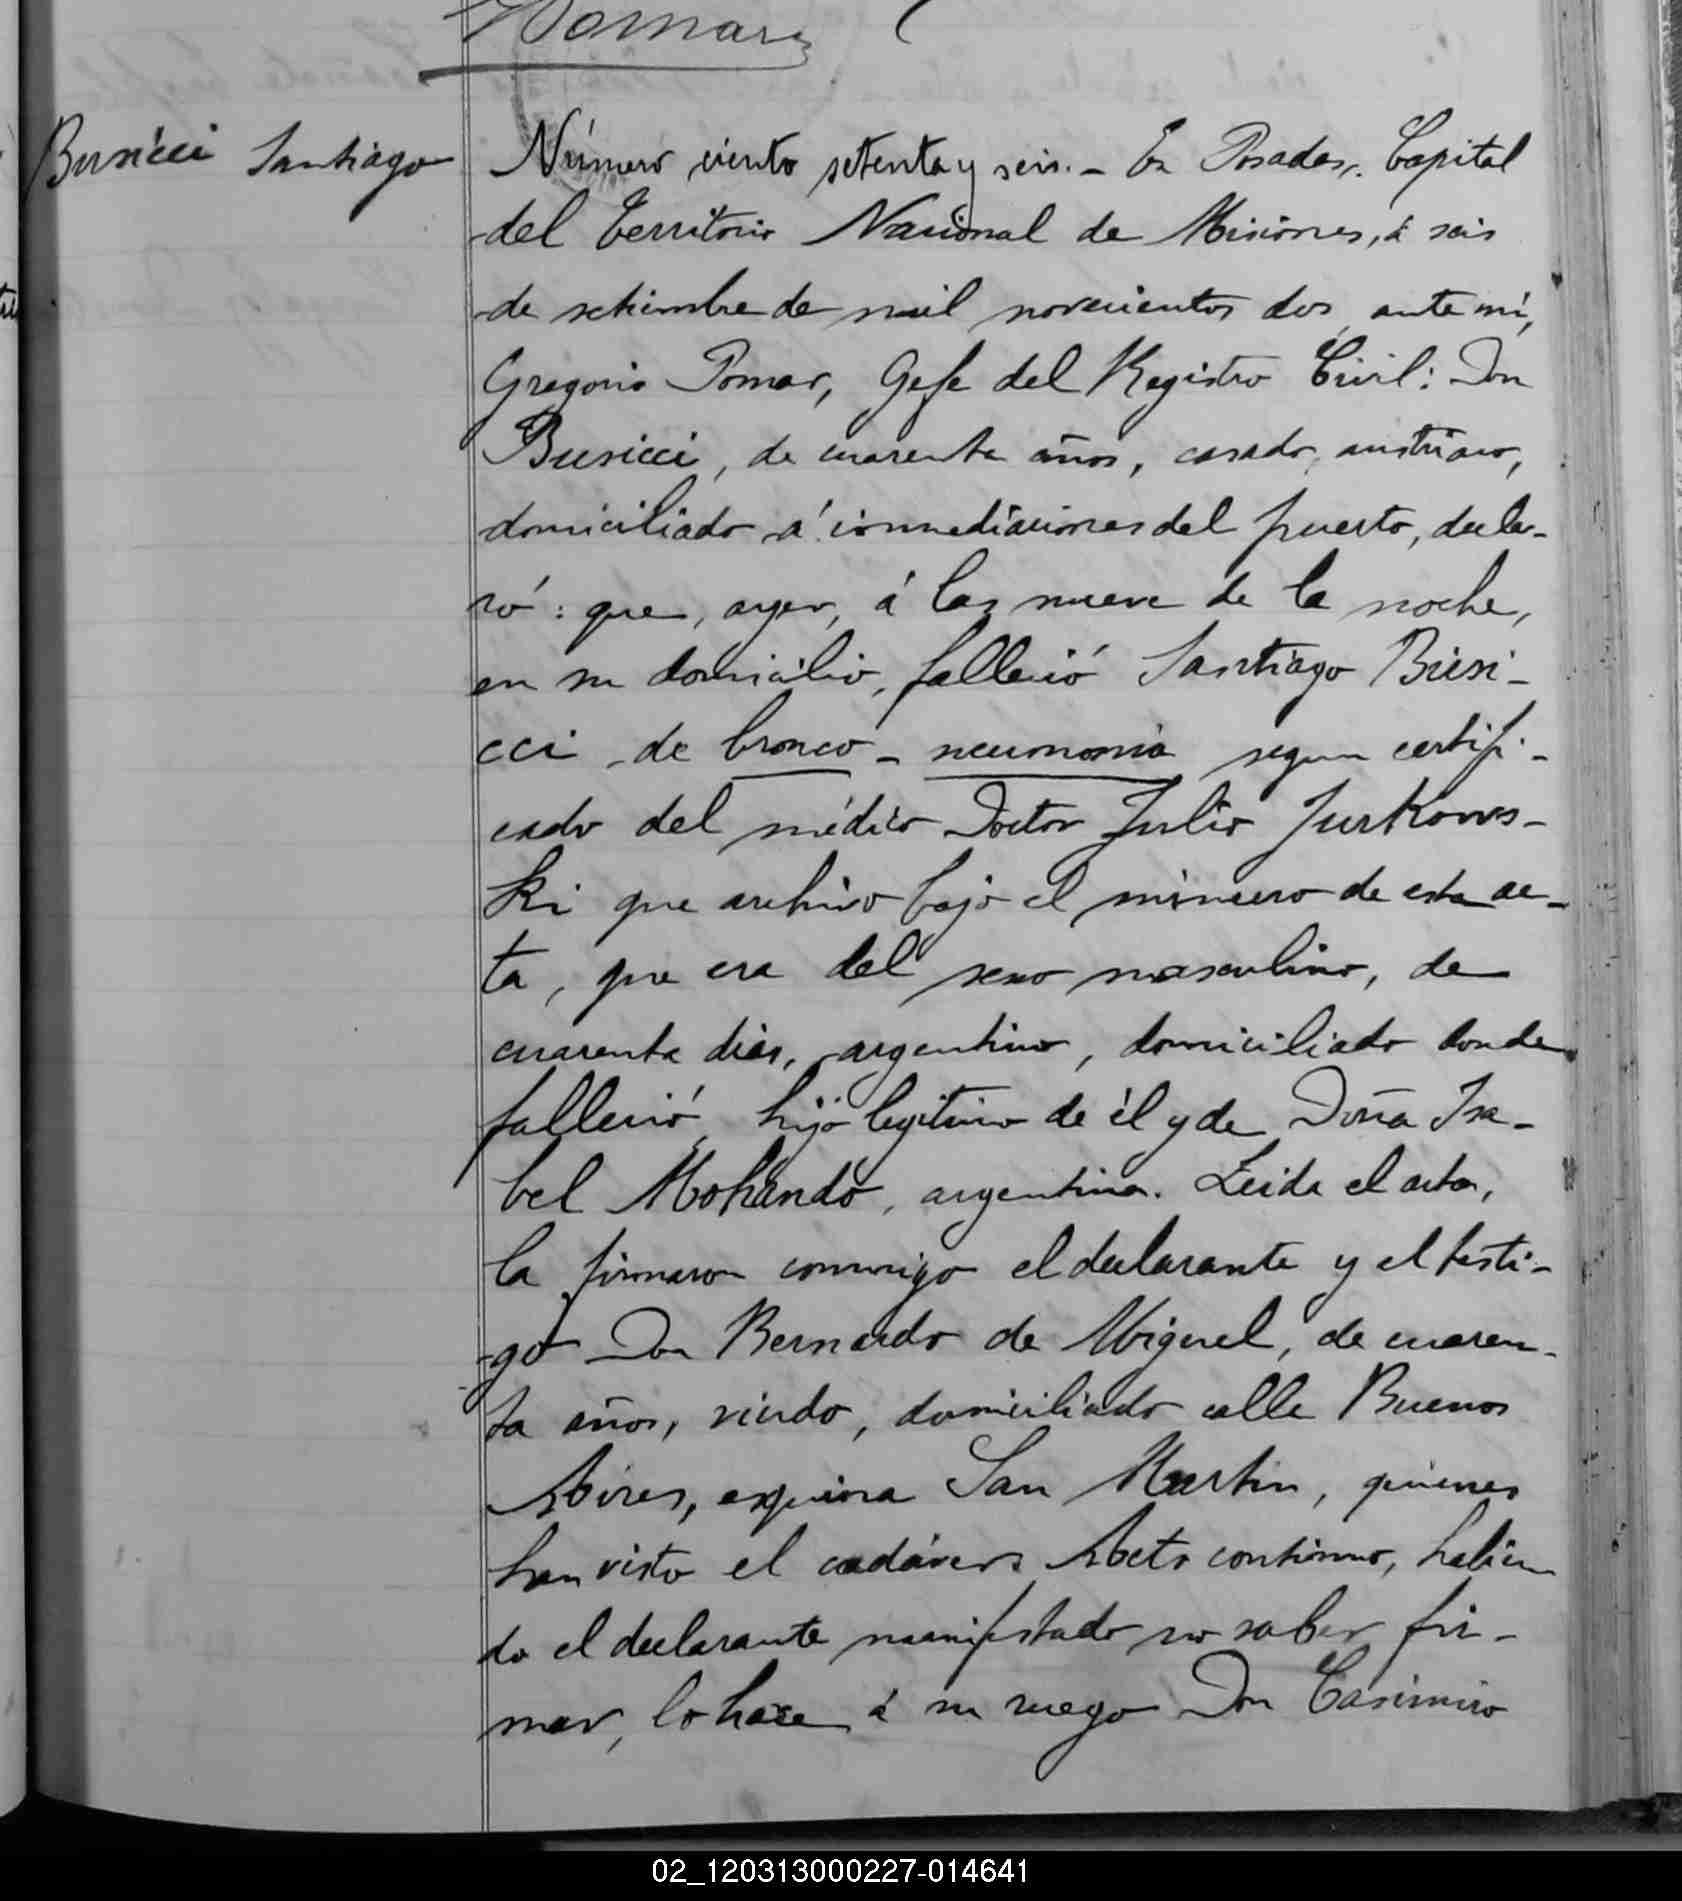 Pomar
Busicci Santiago
Número ciento setenta y seis.- En Posadas, Capital
del Territorio Nacional de Misiones, á seis
de setiembre de mil novecientos dos, ante mí,
Gregorio Pomar, Gefe del Registro Civil: Don
Busicci, de cuarenta años, casado, austriaco,
domiciliado á inmediaciones del puerto, decla-
ró: que, ayer, á las nueve de la noche,
en su domicilio, falleció Santiago Busi-
cci de bronco-neumonia segun certifi-
cado del médico Doctor Julio Jurkows-
ki que archivo bajo el número de esta ac-
ta, que era del sexo masculino, de
cuarenta dias, argentino, domiciliado donde
falleció, hijo legitimo de él y de Doña Isa-
bel, argentina. Leida el acta,
la firmaron conmigo el declarante y el testi-
go Don Bernardo de Miguel, de cuaren-
ta años, viudo, domiciliado calle Buenos
Aires, esquina San Martin, quienes
han visto el cadáver. Acto continuo, habien
do el declarante manifestado no saber fir-
mar, lo hace á su ruego Don Casimiro
02_120313000227-014641